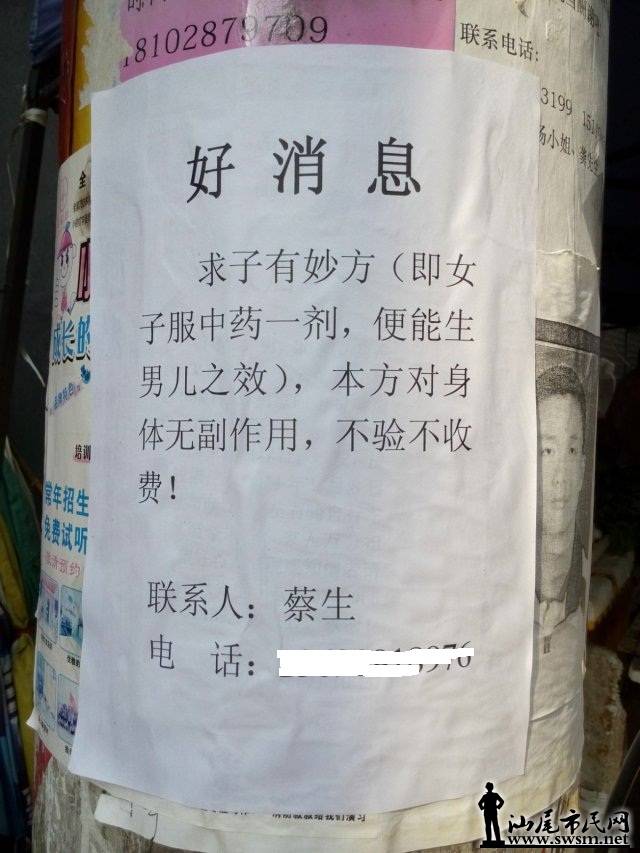 18102879709
联系电话:
3199
杨小姐、龚先生
好消息
求子有妙方（即女
子服中药一剂，便能生
男儿之效），本方对身
体无副作用，不验不收
费！
联系人：蔡生
电 话：
976
全
成长的
培训
常年招生
免费试听
汕尾市民网
www.swsm.net